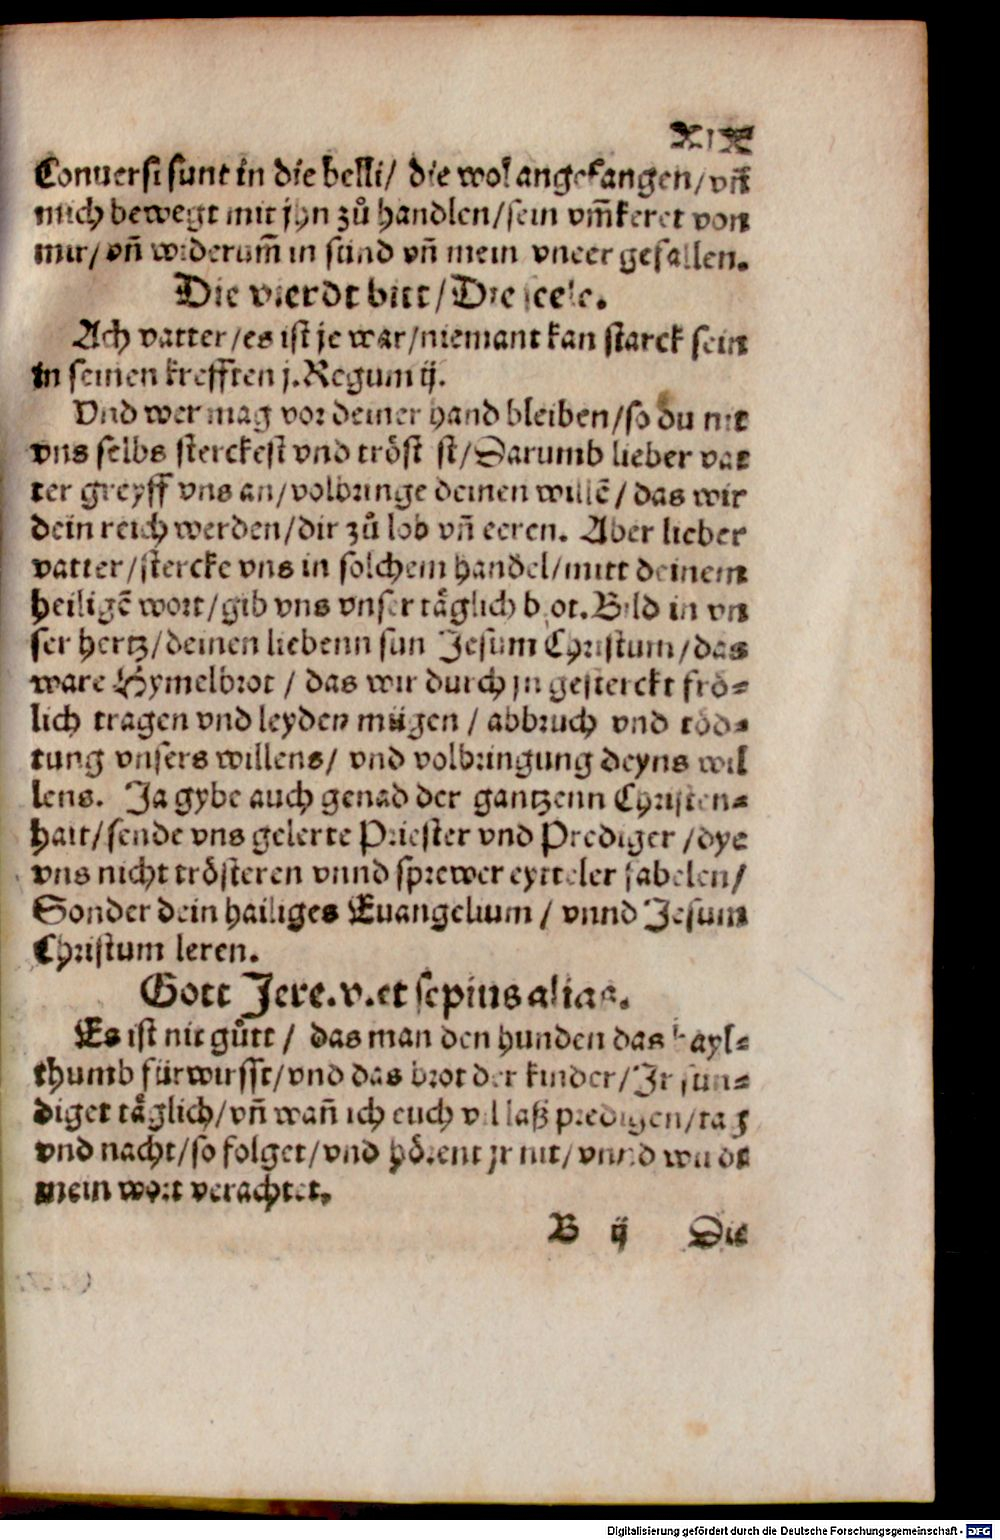 XIX
Conuersi sunt in die belli/ die wol angefangen/vñ
mich bewegt mit jhn zů handlen/sein vm̃keret von
mir/ vñ widerum̃ in sünd vñ mein vneer gefallen.
Die vierdt bitt/Die seele.
Ach vatter/es ist je war/niemant kan starck sein
in seinen krefften j.Regum ij.
Vnd wer mag vor deiner hand bleiben/so du nit
vns selbs sterckest vnd tröst st/Darumb lieber vat
ter greyff vns an/volbringe deinen willẽ/ das wir
dein reich werden/dir zů lob vñ eeren. Aber lieber
vatter/stercke vns in solchem handel/mitt deinem
heiligẽ wort/gib vns vnser täglich brot.Bild in vn
ser hertz/deinen liebenn sun Jesum Christum/das
ware Hymelbrot / das wir durch jn gesterckt frö-
lich tragen vnd leyden mügen / abbruch vnd töd-
tung vnsers willens/ vnd volbringung deyns wil
lens. Ja gybe auch genad der gantzenn Christen-
hait/sende vns gelerte Priester vnd Prediger /dye
vns nicht trösteren vnnd sprewer eytteler fabelen/
Sonder dein hailiges Euangelium / vnnd Jesum
Christum leren.
Gott Jere.v.et sepius alias.
Es ist nit gůtt / das man den hunden das hayl-
thumb fürwirfft/vnd das brot der kinder/Jr sün-
diget täglich/vñ wañ ich euch vil laß predigen/tag
vnd nacht/so folget/vnd hörent jr nit/ vnnd wirdt
mein wort verachtet.
B ij Die
Digitalisierung gefördert durch die Deutsche Forschungsgemeinschaft - DFG